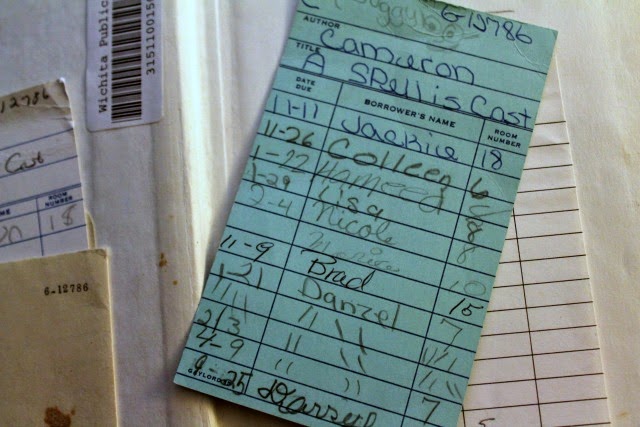 G-15786
AUTHOR
Cameron
TITLE
A Spell is Cast
DATE DUE BORROWER'S NAME ROOM NUMBER
11-11 Jackie 18
11-26 Colleen 6
1-22 Hameed
1-29 Lisa 8
2-4 Nicole 8
10
11-9 Brad 15
1-21 Danzel 7
1/11 11 \\ 1/1
2/3 11 \\ 1/11
4-9 11 )) 7
4-25
GAYLORD
Wichita Public
12786
Cast
ROOM NUMBER
18
6-12786